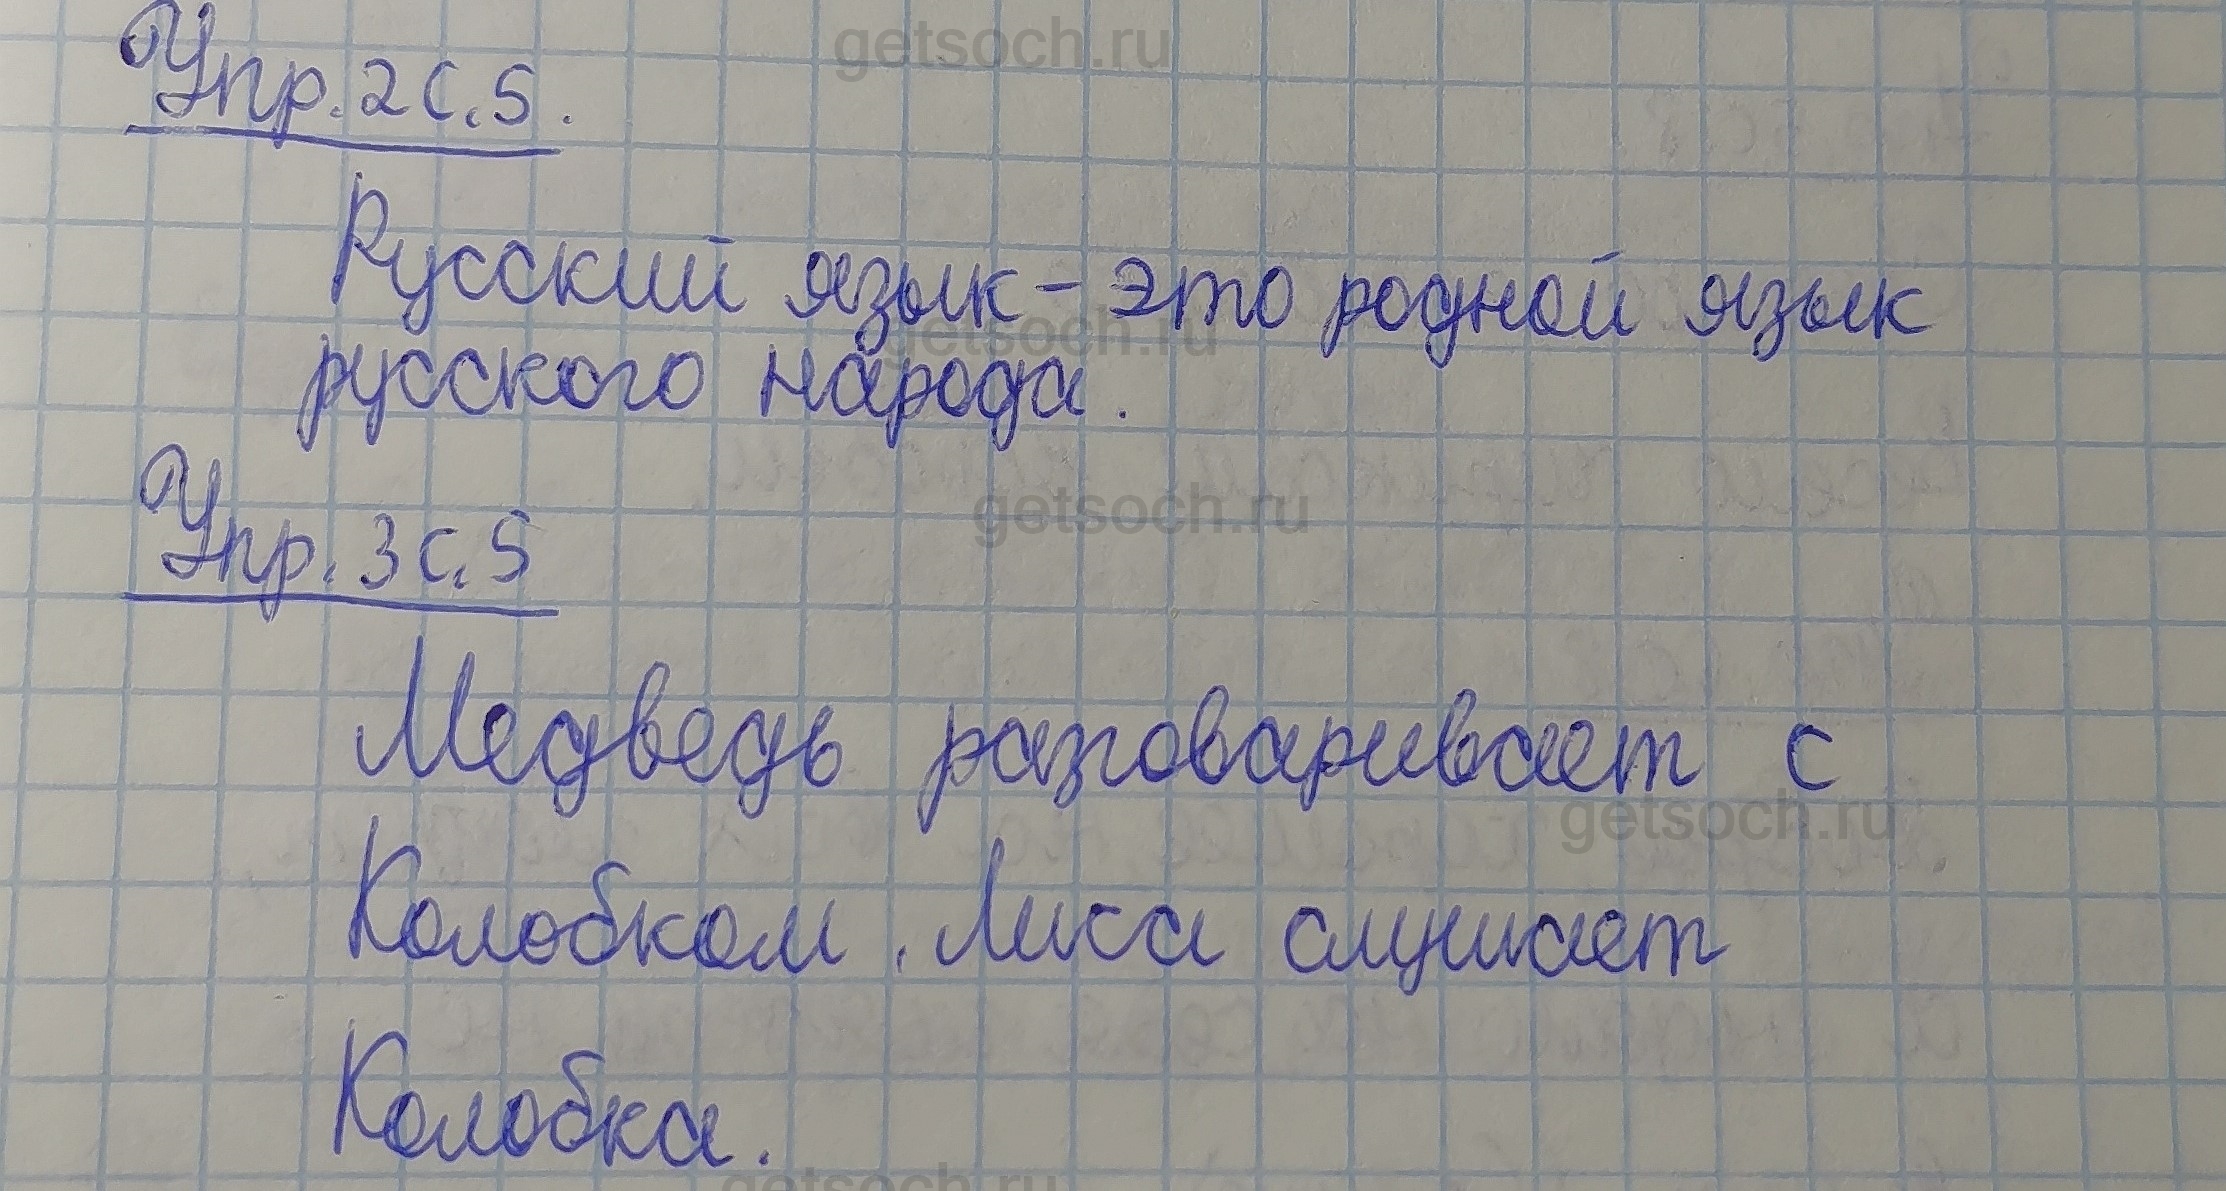 getsoch.ru
Упр. 2 с. 5.
Русский язык - это родной язык
getsoch.ru
русского народа.
getsoch.ru
Упр. 3 с. 5
Медведь разговаривает с
getsoch.ru
Колобком. Лиса слушает
Колобка.
getsoch.ru